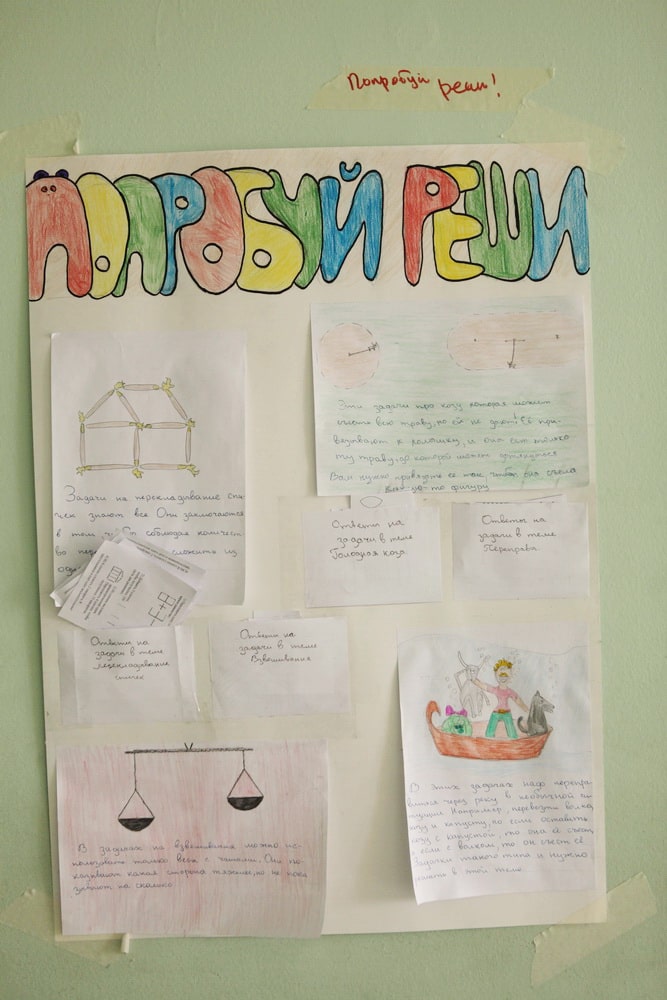 Попробуй реши!
ПОПРОБУЙ РЕШИ
Эти задачи про козу которая может
съесть всю траву, но ей не дают! Её при-
вязывают к колышку, и она ест только
ту траву, до которой может дотянуться
Вам нужно привязать её так чтобы она съела
какую-то фигуру
Задачи на перекладывание спи-
чек знают все Они заключаются
в том соблюдая количест
во сложить из
Ответы на
задачи в теме
Голодная коза
Ответы на
задачи в теме
Переправа
Ответы на
задачи в теме
перекладывание
спичек
Ответы на
задачи в теме
Взвешивания
В этих задачах надо перепра
виться через реку в необычной си
туации Например, перевезти волка,
козу и капусту, но если оставить
козу с капустой, то она её съест,
а если с волком, то он съест её
Задачки такого типа и нужно
решать в этой теме.
В задачах на взвешивания можно ис-
пользовать только весы с чашами. Они по
казывают какая сторона тяжелее, но не пока
зывают на сколько